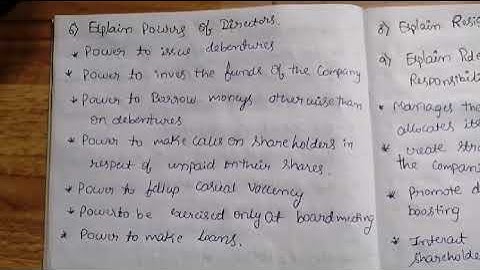 6) Explain Powers of Directors.
* Power to issue debentures
* Power to inves the funds of the Company
* Power to Borrow moneys otherwise than
on debentures
* Power to make calles on shareholders in
respect of unpaid on their shares.
* Power to fillup casual Vaccency
* Power to be exercised only at board meeting
* Power to make loans.
8) Explain
9) Explain
Responsibil
* Manages the
allocates
* create
the Compan
* Promote d
boosting
* Interact
Shareholde